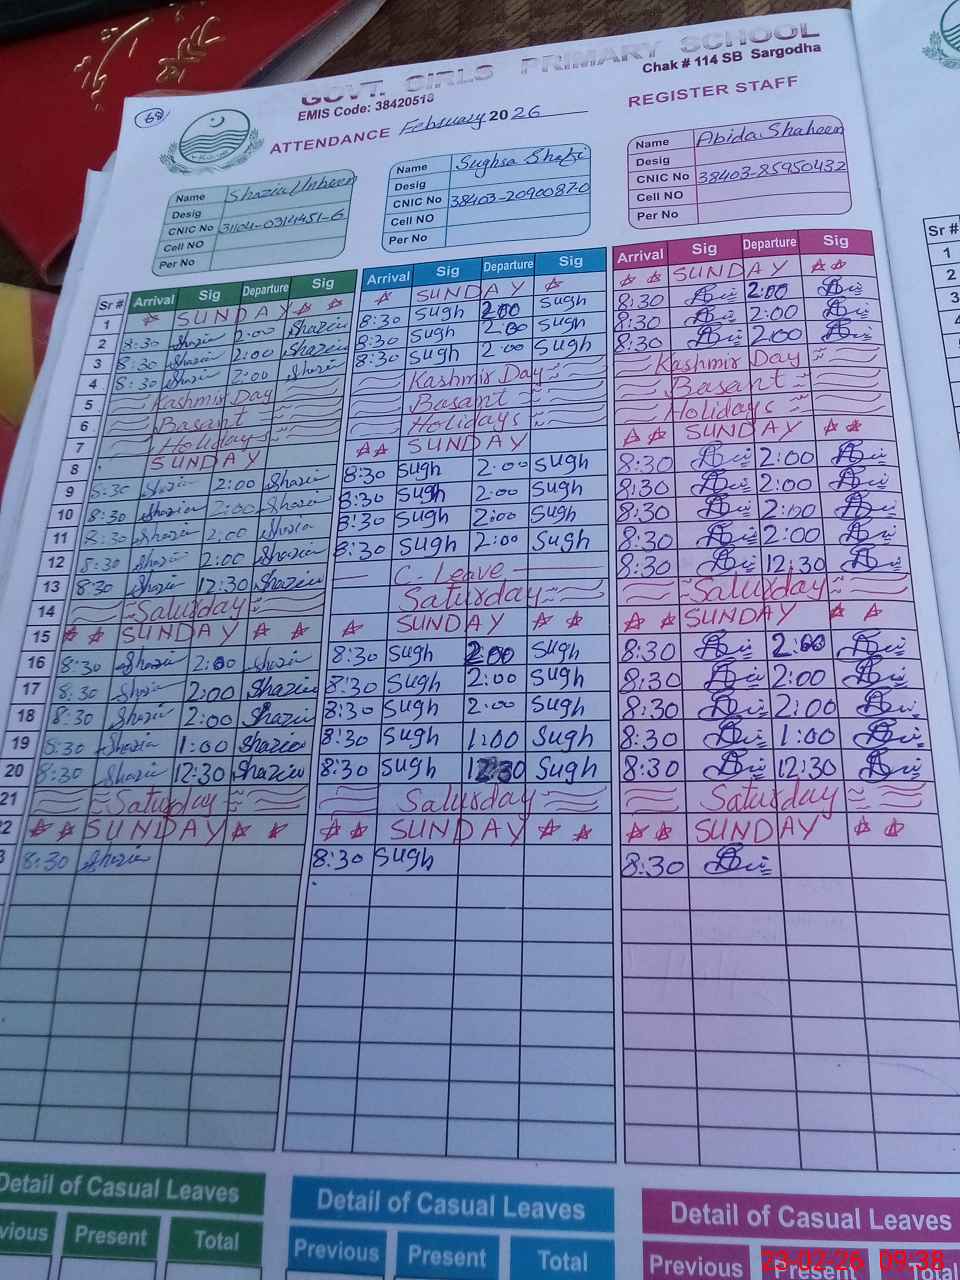 68
GOVT. GIRLS PRIMARY SCHOOL
EMIS Code: 38420518
Chak # 114 SB Sargodha
ATTENDANCE February 2026 REGISTER STAFF
Name Shazia
Desig
CNIC No 31104-0314451-6
Cell NO
Per No
Name Sughsa Shafi
Desig
CNIC No 38403-2090087-0
Cell NO
Per No
Name Abida Shaheen
Desig
CNIC No 38403-8595043-2
Cell NO
Per No
Sr # Arrival Sig Departure Sig Arrival Sig Departure Sig Arrival Sig Departure Sig
1 SUNDAY SUNDAY SUNDAY
2 8:30 Shazia 2:00 Shazia 8:30 Sugh 2:00 Sugh 8:30 2:00
3 8:30 Shazia 2:00 Shazia 8:30 Sugh 2:00 Sugh 8:30 2:00
4 8:30 Shazia 2:00 Shazia 8:30 Sugh 2:00 Sugh 8:30 2:00
5 Kashmir Day Kashmir Day Kashmir Day
6 Basant Basant Basant
7 Holidays Holidays Holidays
8 SUNDAY SUNDAY SUNDAY
9 8:30 Shazia 2:00 Shazia 8:30 Sugh 2:00 Sugh 8:30 2:00
10 8:30 Shazia 2:00 Shazia 8:30 Sugh 2:00 Sugh 8:30 2:00
11 8:30 Shazia 2:00 Shazia 8:30 Sugh 2:00 Sugh 8:30 2:00
12 8:30 Shazia 2:00 Shazia 8:30 Sugh 2:00 Sugh 8:30 2:00
13 8:30 Shazia 12:30 Shazia C. Leave 8:30 12:30
14 Saturday Saturday Saturday
15 SUNDAY SUNDAY SUNDAY
16 8:30 Shazia 2:00 Shazia 8:30 Sugh 2:00 Sugh 8:30 2:00
17 8:30 Shazia 2:00 Shazia 8:30 Sugh 2:00 Sugh 8:30 2:00
18 8:30 Shazia 2:00 Shazia 8:30 Sugh 2:00 Sugh 8:30 2:00
19 8:30 Shazia 1:00 Shazia 8:30 Sugh 1:00 Sugh 8:30 1:00
20 8:30 Shazia 12:30 Shazia 8:30 Sugh 12:30 Sugh 8:30 12:30
21 Saturday Saturday Saturday
22 SUNDAY SUNDAY SUNDAY
3 8:30 Shazia 8:30 Sugh 8:30
Detail of Casual Leaves Detail of Casual Leaves Detail of Casual Leaves
vious Present Total Previous Present Total Previous Present Total
Sr #
1
2
3
23-02-26 09:38